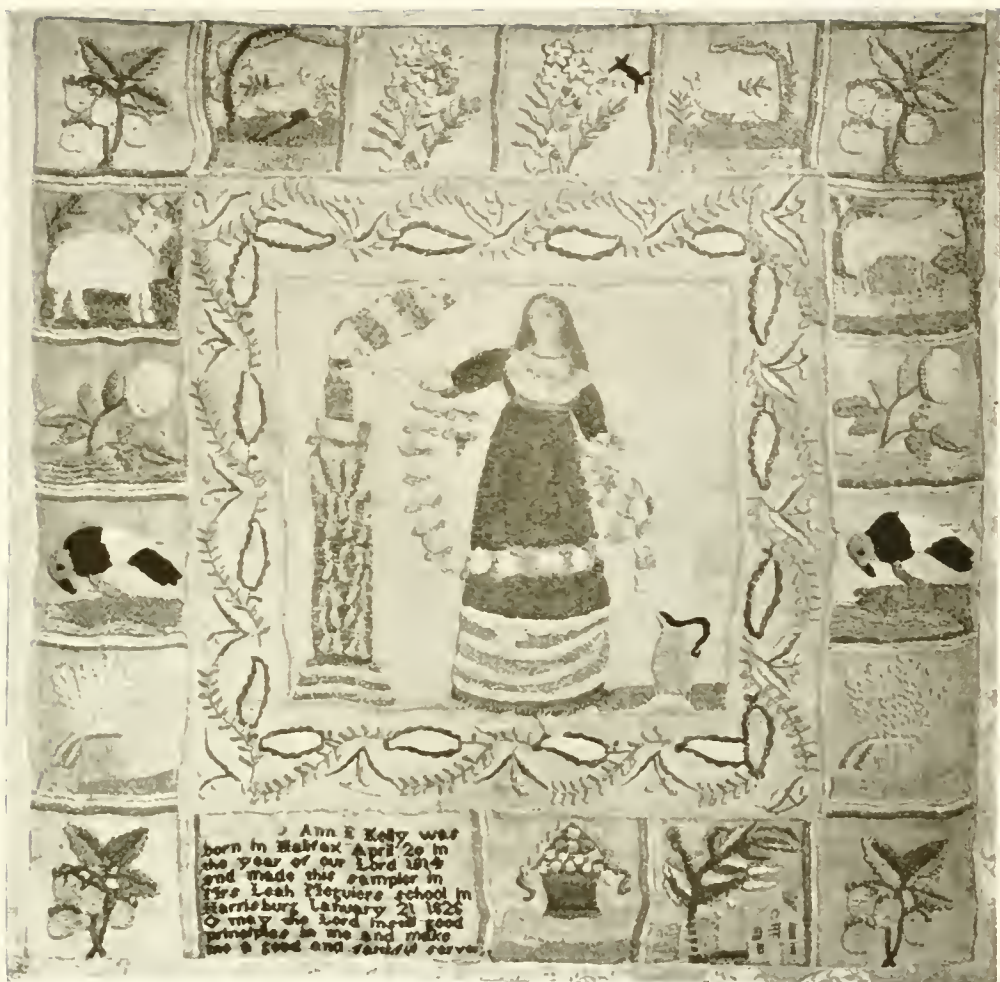 I Ann E Kelly was
born in Halifax April 20 in
the year of our Lord 1814
and made this sampler in
Mrs Leah Meguiers school in
Harrisburg January 21 1826
O may the Lord instil good
principles in me and make
me a good and faithful serve